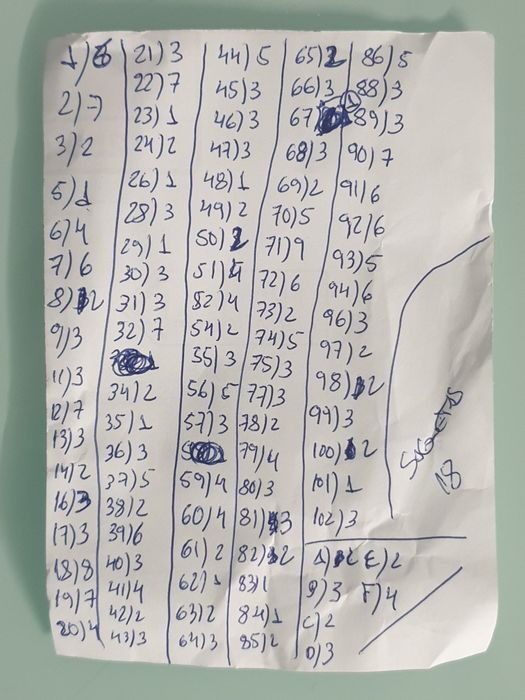 2)7
3)2
5)1
6)4
7)6
8)2
9)3
11)3
12)7
13)3
14)2
16)3
17)3
18)8
19)7
20)4
21)3
22)7
23)1
24)2
26)1
28)3
29)1
30)3
31)3
32)7
34)2
35)1
36)3
37)5
38)2
39)6
40)3
41)4
42)2
43)3
44)5
45)3
46)3
47)3
48)1
49)2
50)2
51)4
52)4
54)2
55)3
56)5
57)3
59)4
60)4
61)2
62)1
63)2
64)3
65)2
66)3
67)1
68)3
69)2
70)5
71)9
72)6
73)2
74)5
75)3
77)3
78)2
79)4
80)3
81)3
82)2
83)1
84)1
85)2
86)5
88)3
89)3
90)7
91)6
92)6
93)5
94)6
96)3
97)2
98)2
99)3
100)2
101)1
102)3
A)2 E)2
B)3 F)4
C)2
D)3
18